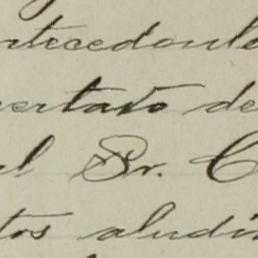 ntecedente
ertado de
al Sr. C
tos aludi